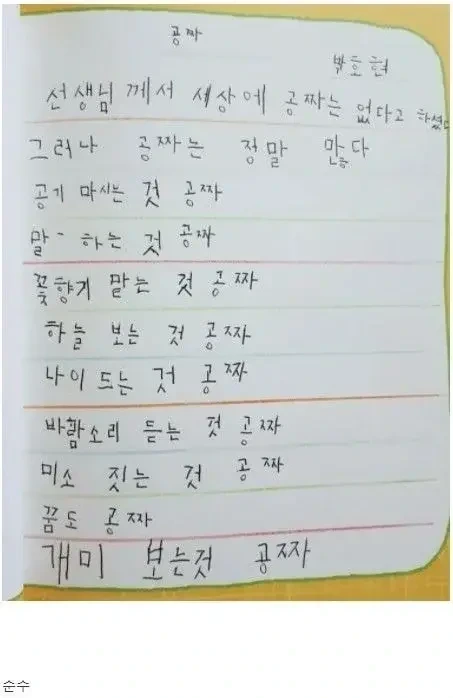 공짜
박호현
선생님께서 세상에 공짜는 없다고 하셨다
그러나 공짜는 정말 많다
공기 마시는 것 공짜
말 하는 것 공짜
꽃향기 맡는 것 공짜
하늘 보는 것 공짜
나이 드는 것 공짜
바람소리 듣는 것 공짜
미소 짓는 것 공짜
꿈도 공짜
개미 보는것 공짜
순수